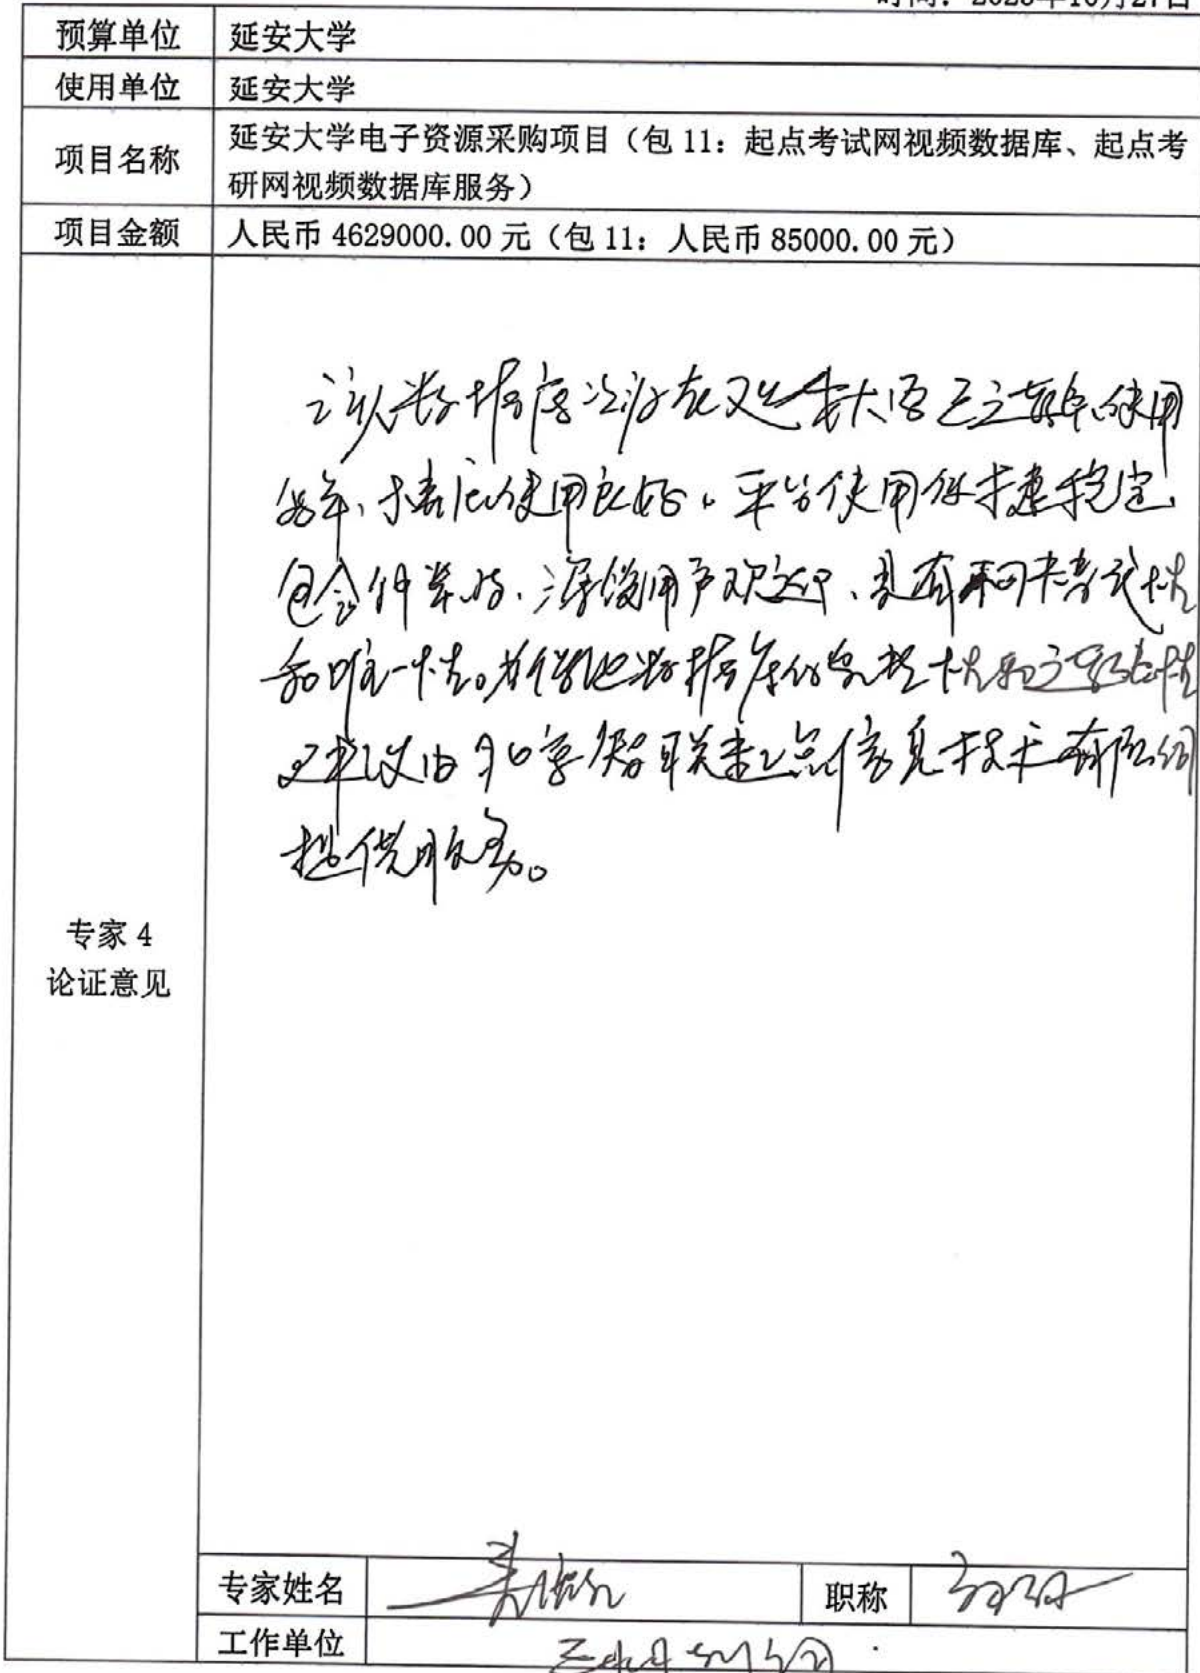 时间：2023年10月27日
预算单位 延安大学
使用单位 延安大学
项目名称 延安大学电子资源采购项目（包 11：起点考试网视频数据库、起点考
研网视频数据库服务）
项目金额 人民币 4629000.00 元（包 11：人民币 85000.00 元）
该数据库资源在延安大学已连续使用
多年、使用良好。平台使用便捷稳定、
深受用户欢迎、具有不可替代性
和唯一性。数据库的完整性和连续性
建议由北京智联起点信息技术有限公司
提供服务。
专家 4
论证意见
专家姓名
职称
工作单位